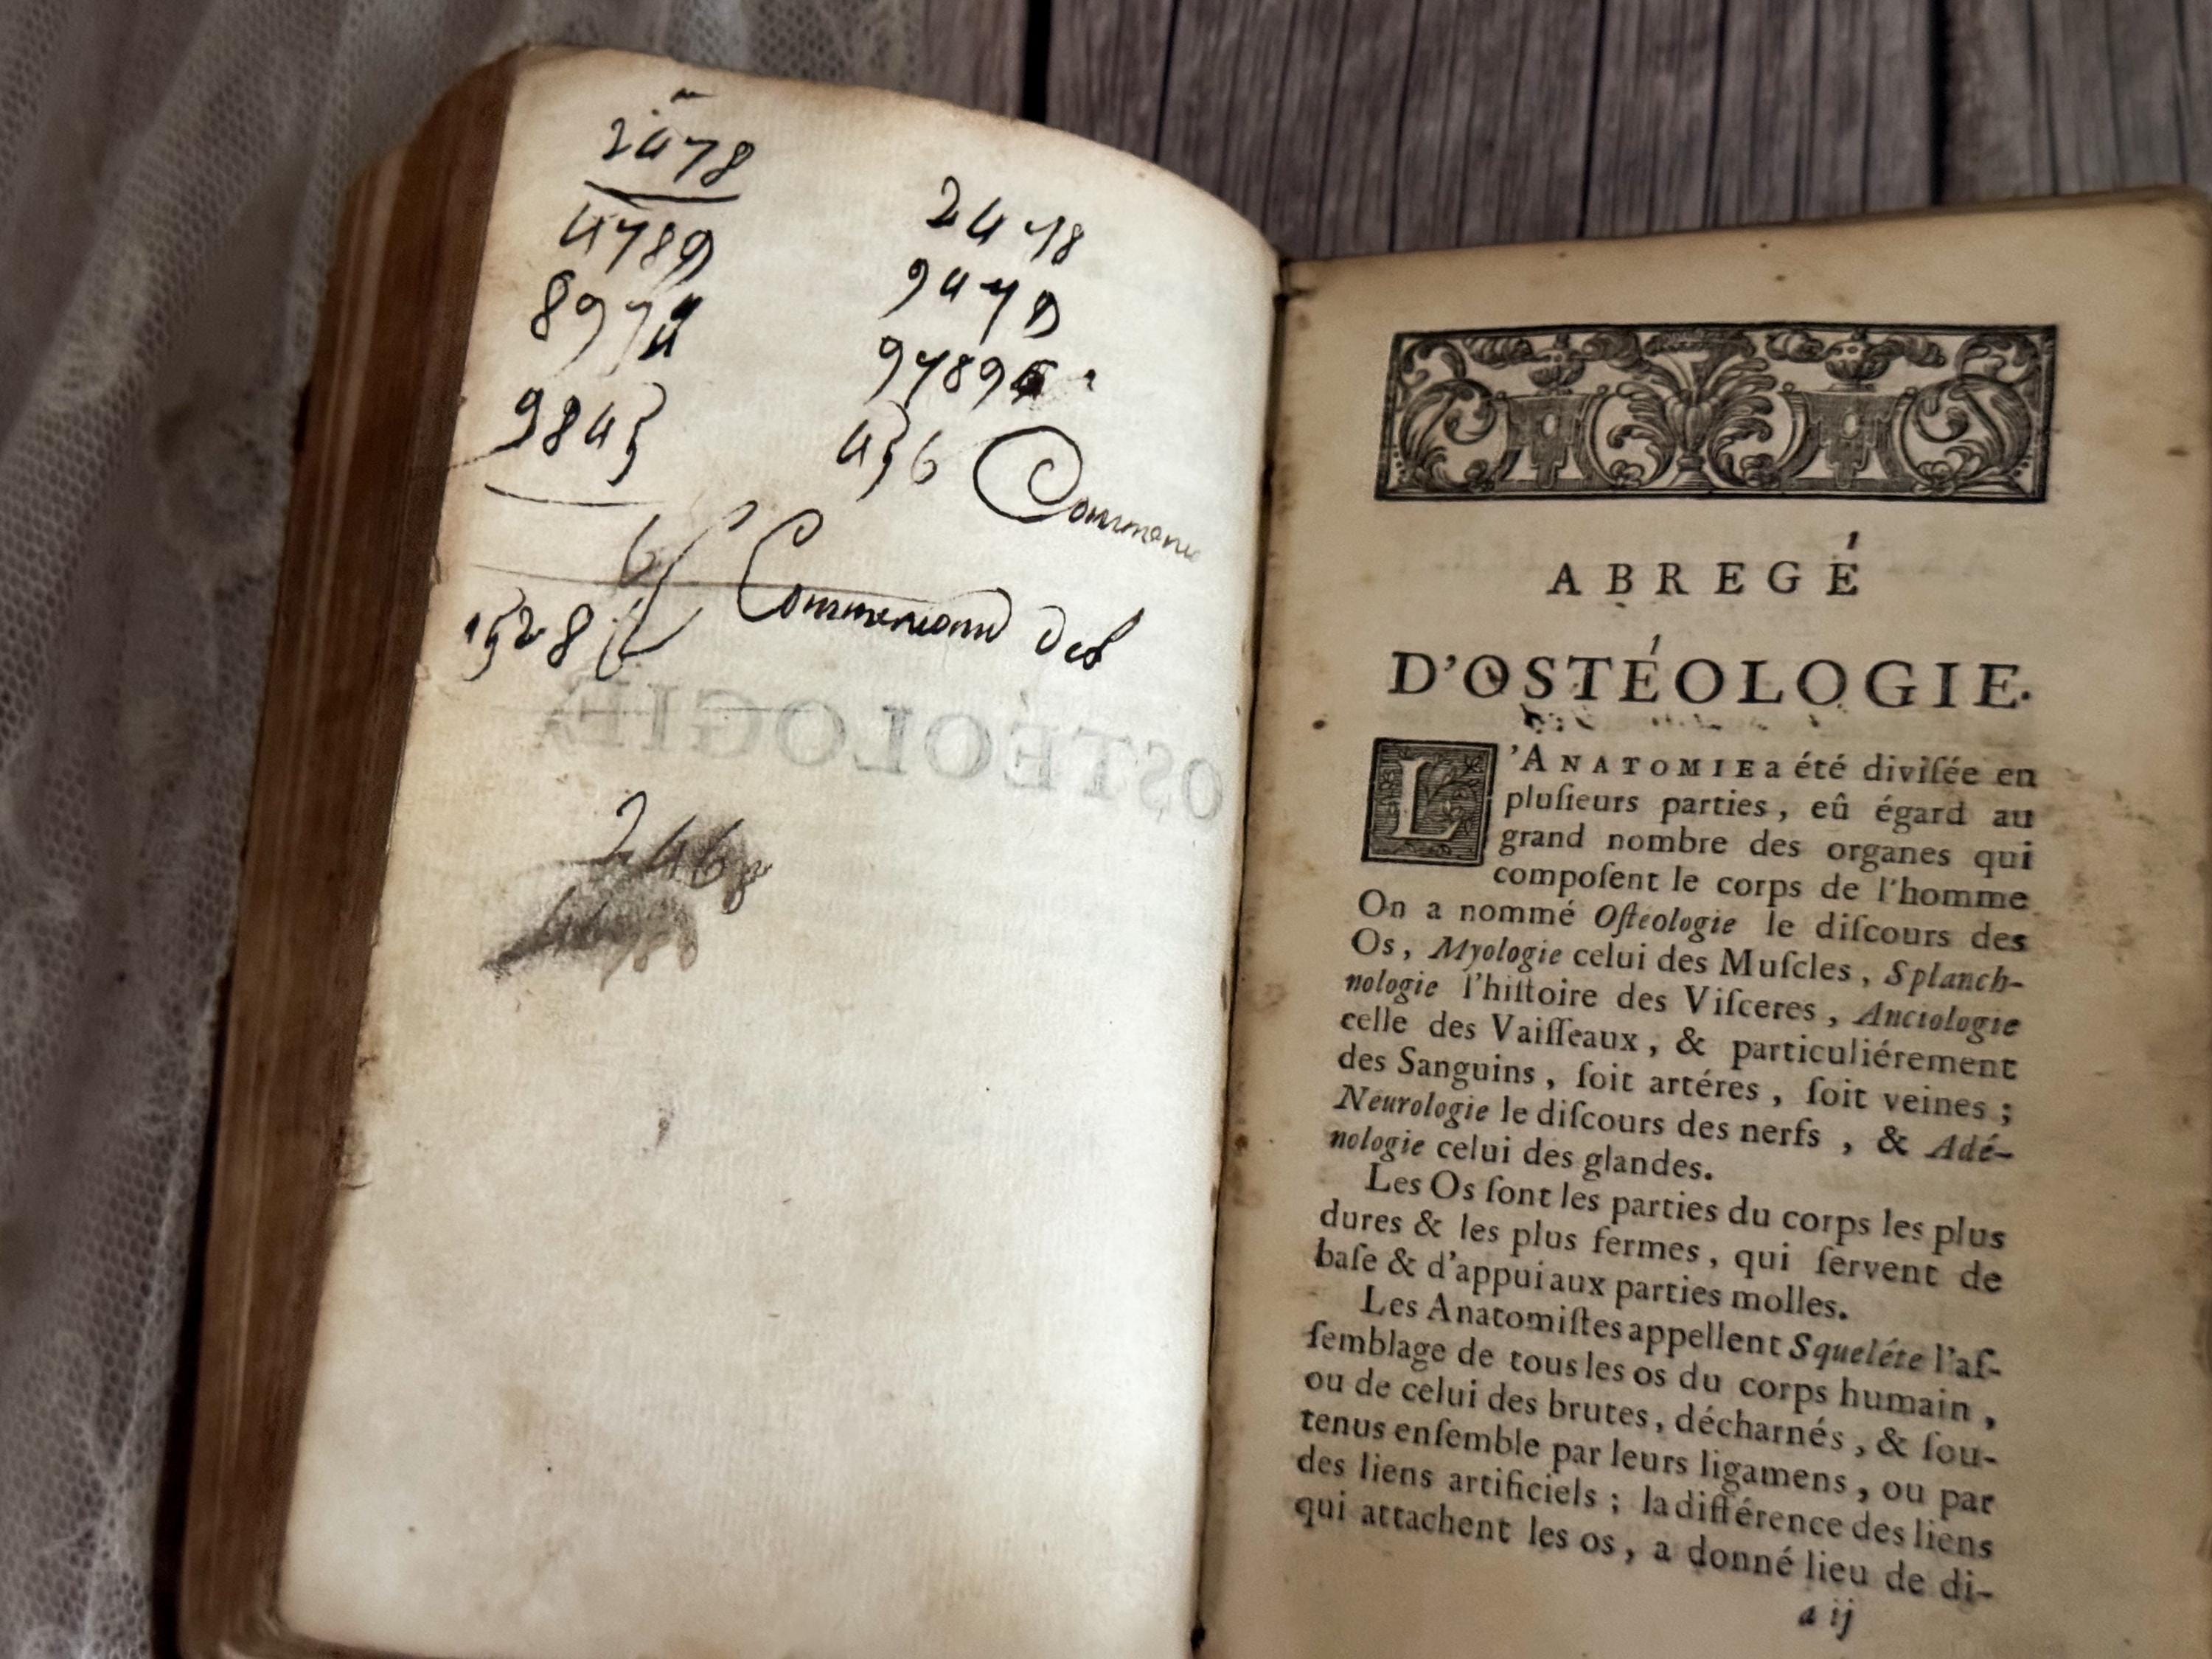 2478
4789
8974
9843
6
1528
2478
9479
97896
436 Commene
Commencand des
OSTÉOLOGIE
2468
ABREGÉ
D'OSTÉOLOGIE.
L'ANATOMIE a été diviſée en
pluſieurs parties, eû égard au
grand nombre des organes qui
compoſent le corps de l'homme
On a nommé Oſteologie le diſcours des
Os, Myologie celui des Muſcles, Splanch-
nologie l'hiſtoire des Viſceres, Anciologie
celle des Vaiſſeaux, & particuliérement
des Sanguins, ſoit artéres, ſoit veines;
Neurologie le diſcours des nerfs, & Adé-
nologie celui des glandes.
Les Os ſont les parties du corps les plus
dures & les plus fermes, qui ſervent de
baſe & d'appui aux parties molles.
Les Anatomiſtes appellent Squeléte l'aſ-
ſemblage de tous les os du corps humain,
ou de celui des brutes, décharnés, & ſou-
tenus enſemble par leurs ligamens, ou par
des liens artificiels; la différence des liens
qui attachent les os, a donné lieu de di-
a ij